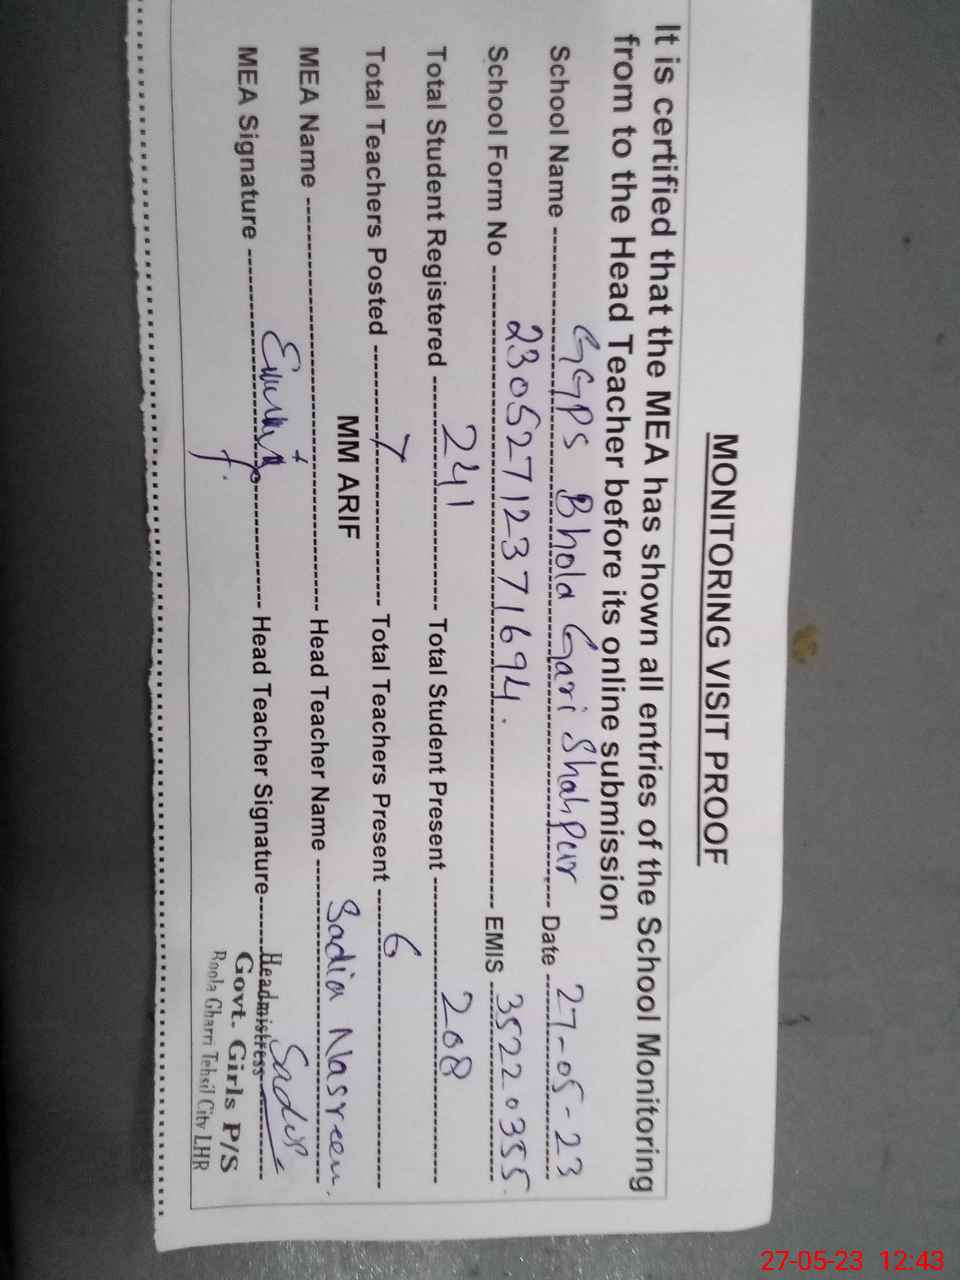 MONITORING VISIT PROOF
It is certified that the MEA has shown all entries of the School Monitoring
from to the Head Teacher before its online submission
School Name GGPS Bhola Gari Shahpur Date 27-05-23
School Form No 23052712371694. EMIS 35220355.
Total Student Registered 241 Total Student Present 208
Total Teachers Posted 7 Total Teachers Present 6
MEA Name MM ARIF Head Teacher Name Sadia Nasreen.
MEA Signature Head Teacher Signature Sadia
Headmistress
Govt. Girls P/S
Gharri Tehsil City LHR
27-05-23 12:43